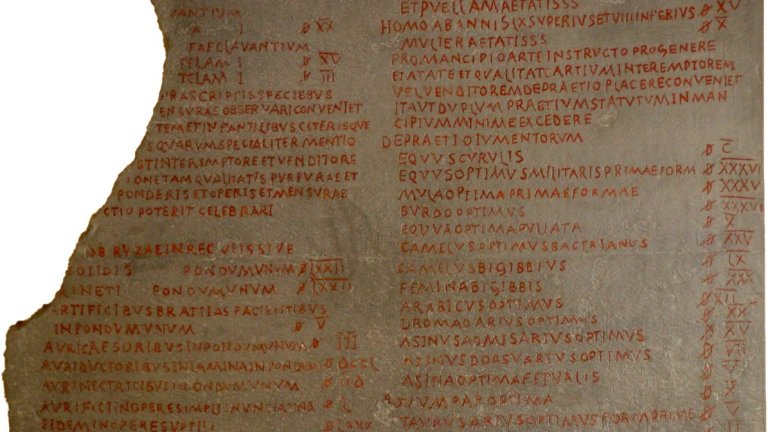 VANTIUM
I ꞩ XX
FAECLAVANTIUM
TELAM I ꞩ XV
TELAM I ꞩ III
PRASCRIPTISSPECIEBUS
ENSURASOBSERVARICONVENIET
TEMETINPANTILIBUSCETERISQUE
SQUARUMSPECIALITERMENTIO
ESTINTEREMPTOREETVENDITORE
IONETAMQUALITATISPURPURAEET
PONDERISETOPERISETMENSURAE
CTIOPOTERITCELEBRARI
OBRUZAEINREGULISSIVE
SOLIDIS PONDUMUNUM ꞩ LXXII
NETI PONDUMUNUM ꞩ LXXII
ARTIFICIBUSBRATTIAS
INPONDUMUNUM ꞩ V
AURICAESORIBUSINPONDUMUNUM ꞩ III
AURIDUCTORIBUSINLAMINAINPONDUM
AURINECTRICIBUSINPONDUMUNUM
AURIFICIINOPERESIMPLI
IDEMINOPERESUPTILI ꞩ LXXX
ETPUELLAMAETATISSS ꞩ XV
HOMOABANNISLXSUPERIUSETVIIIINFERIUS
MULIERAETATISSS
PROMANCIPIOARTEINSTRUCTOPROGENERE
ETAETATEETQUALITATEARTIUMINTEREMPTOREM
VELVENDITOREMDEPRAETIOPLACERECONVENIET
ITAUTDUPLUMPRAETIUMSTATUTUMINMAN
CIPIUMMINIMEEXCEDERE
DEPRAETIOIUMENTORUM
EQUUSCURULIS ꞩ C
EQUUSOPTIMUSMILITARISPRIMAEFORM ꞩ XXXVI
MULAOPTIMAPRIMAEFORMAE ꞩ XXXVI
BURDOOPTIMUS ꞩ XXXVI
EQUAOPTIMAPULLATA ꞩ X
CAMELUSOPTIMUSBACTRIANUS ꞩ XXV
CAMELUSBIGIBBIUS ꞩ LX
FEMINABIGIBBIS ꞩ XXX
ARABICUSOPTIMUS ꞩ XII
DROMADARIUSOPTIMUS ꞩ XX
ASINUSADMISARIUSOPTIMUS ꞩ XV
ASINUSDORSUARIUSOPTIMUS ꞩ VII
ASINAOPTIMAFETUALIS
OPTIMA
TAURUSARIUSOPTIMUSFORMPRIME